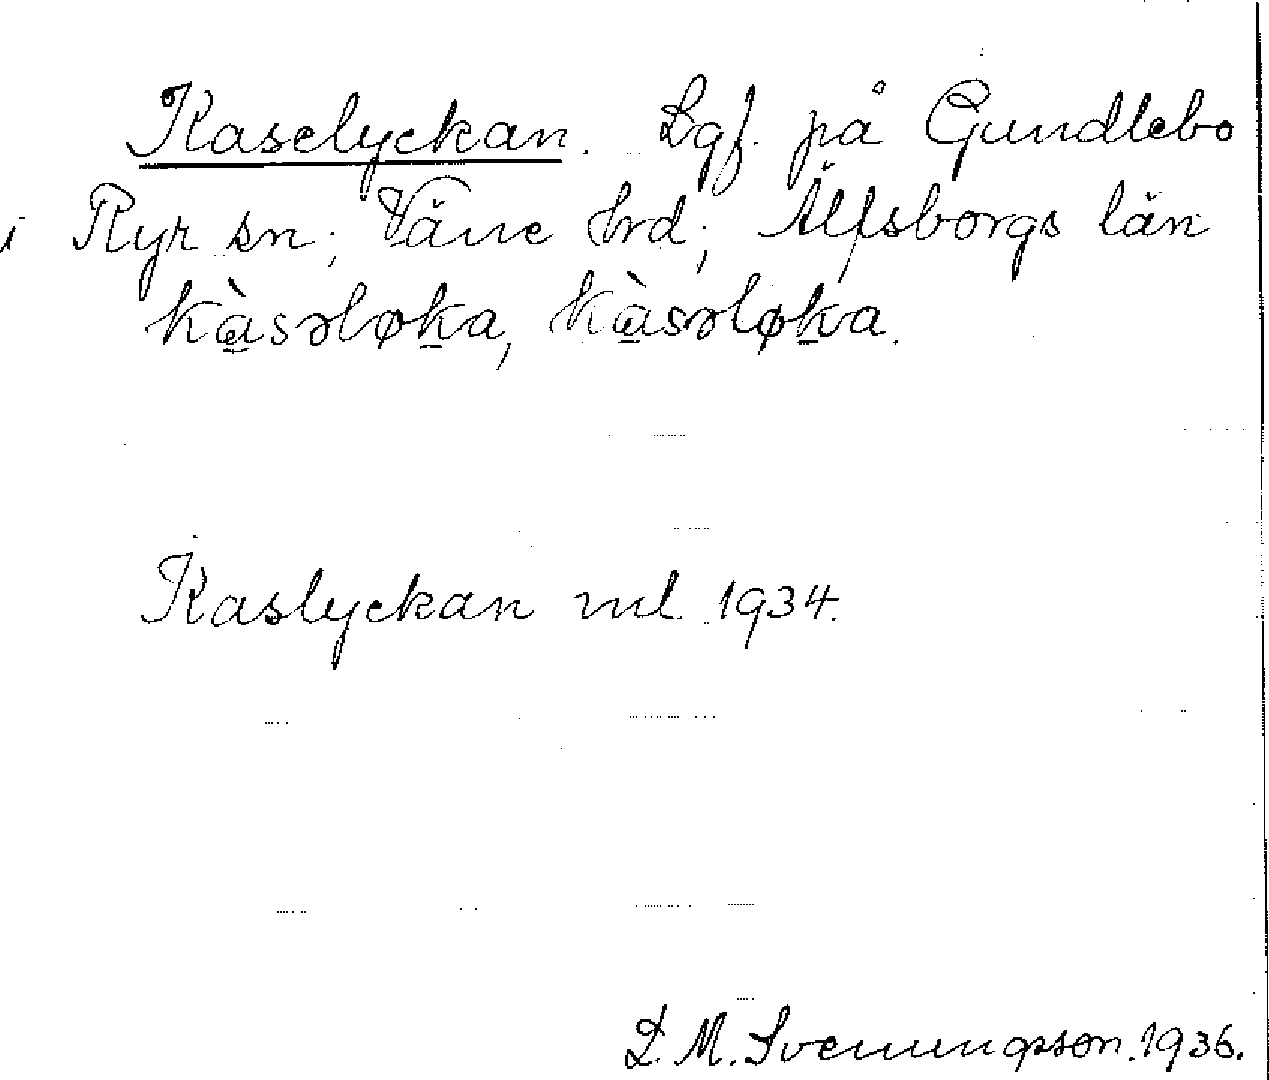 Kaselyckan. Lgf. på Gundlebo
i Ryr sn; Väne hrd; Älfsborgs län
kàsəløka, kàsəløka.
Kaslyckan ml 1934.
L. M. Svenungsson. 1936.